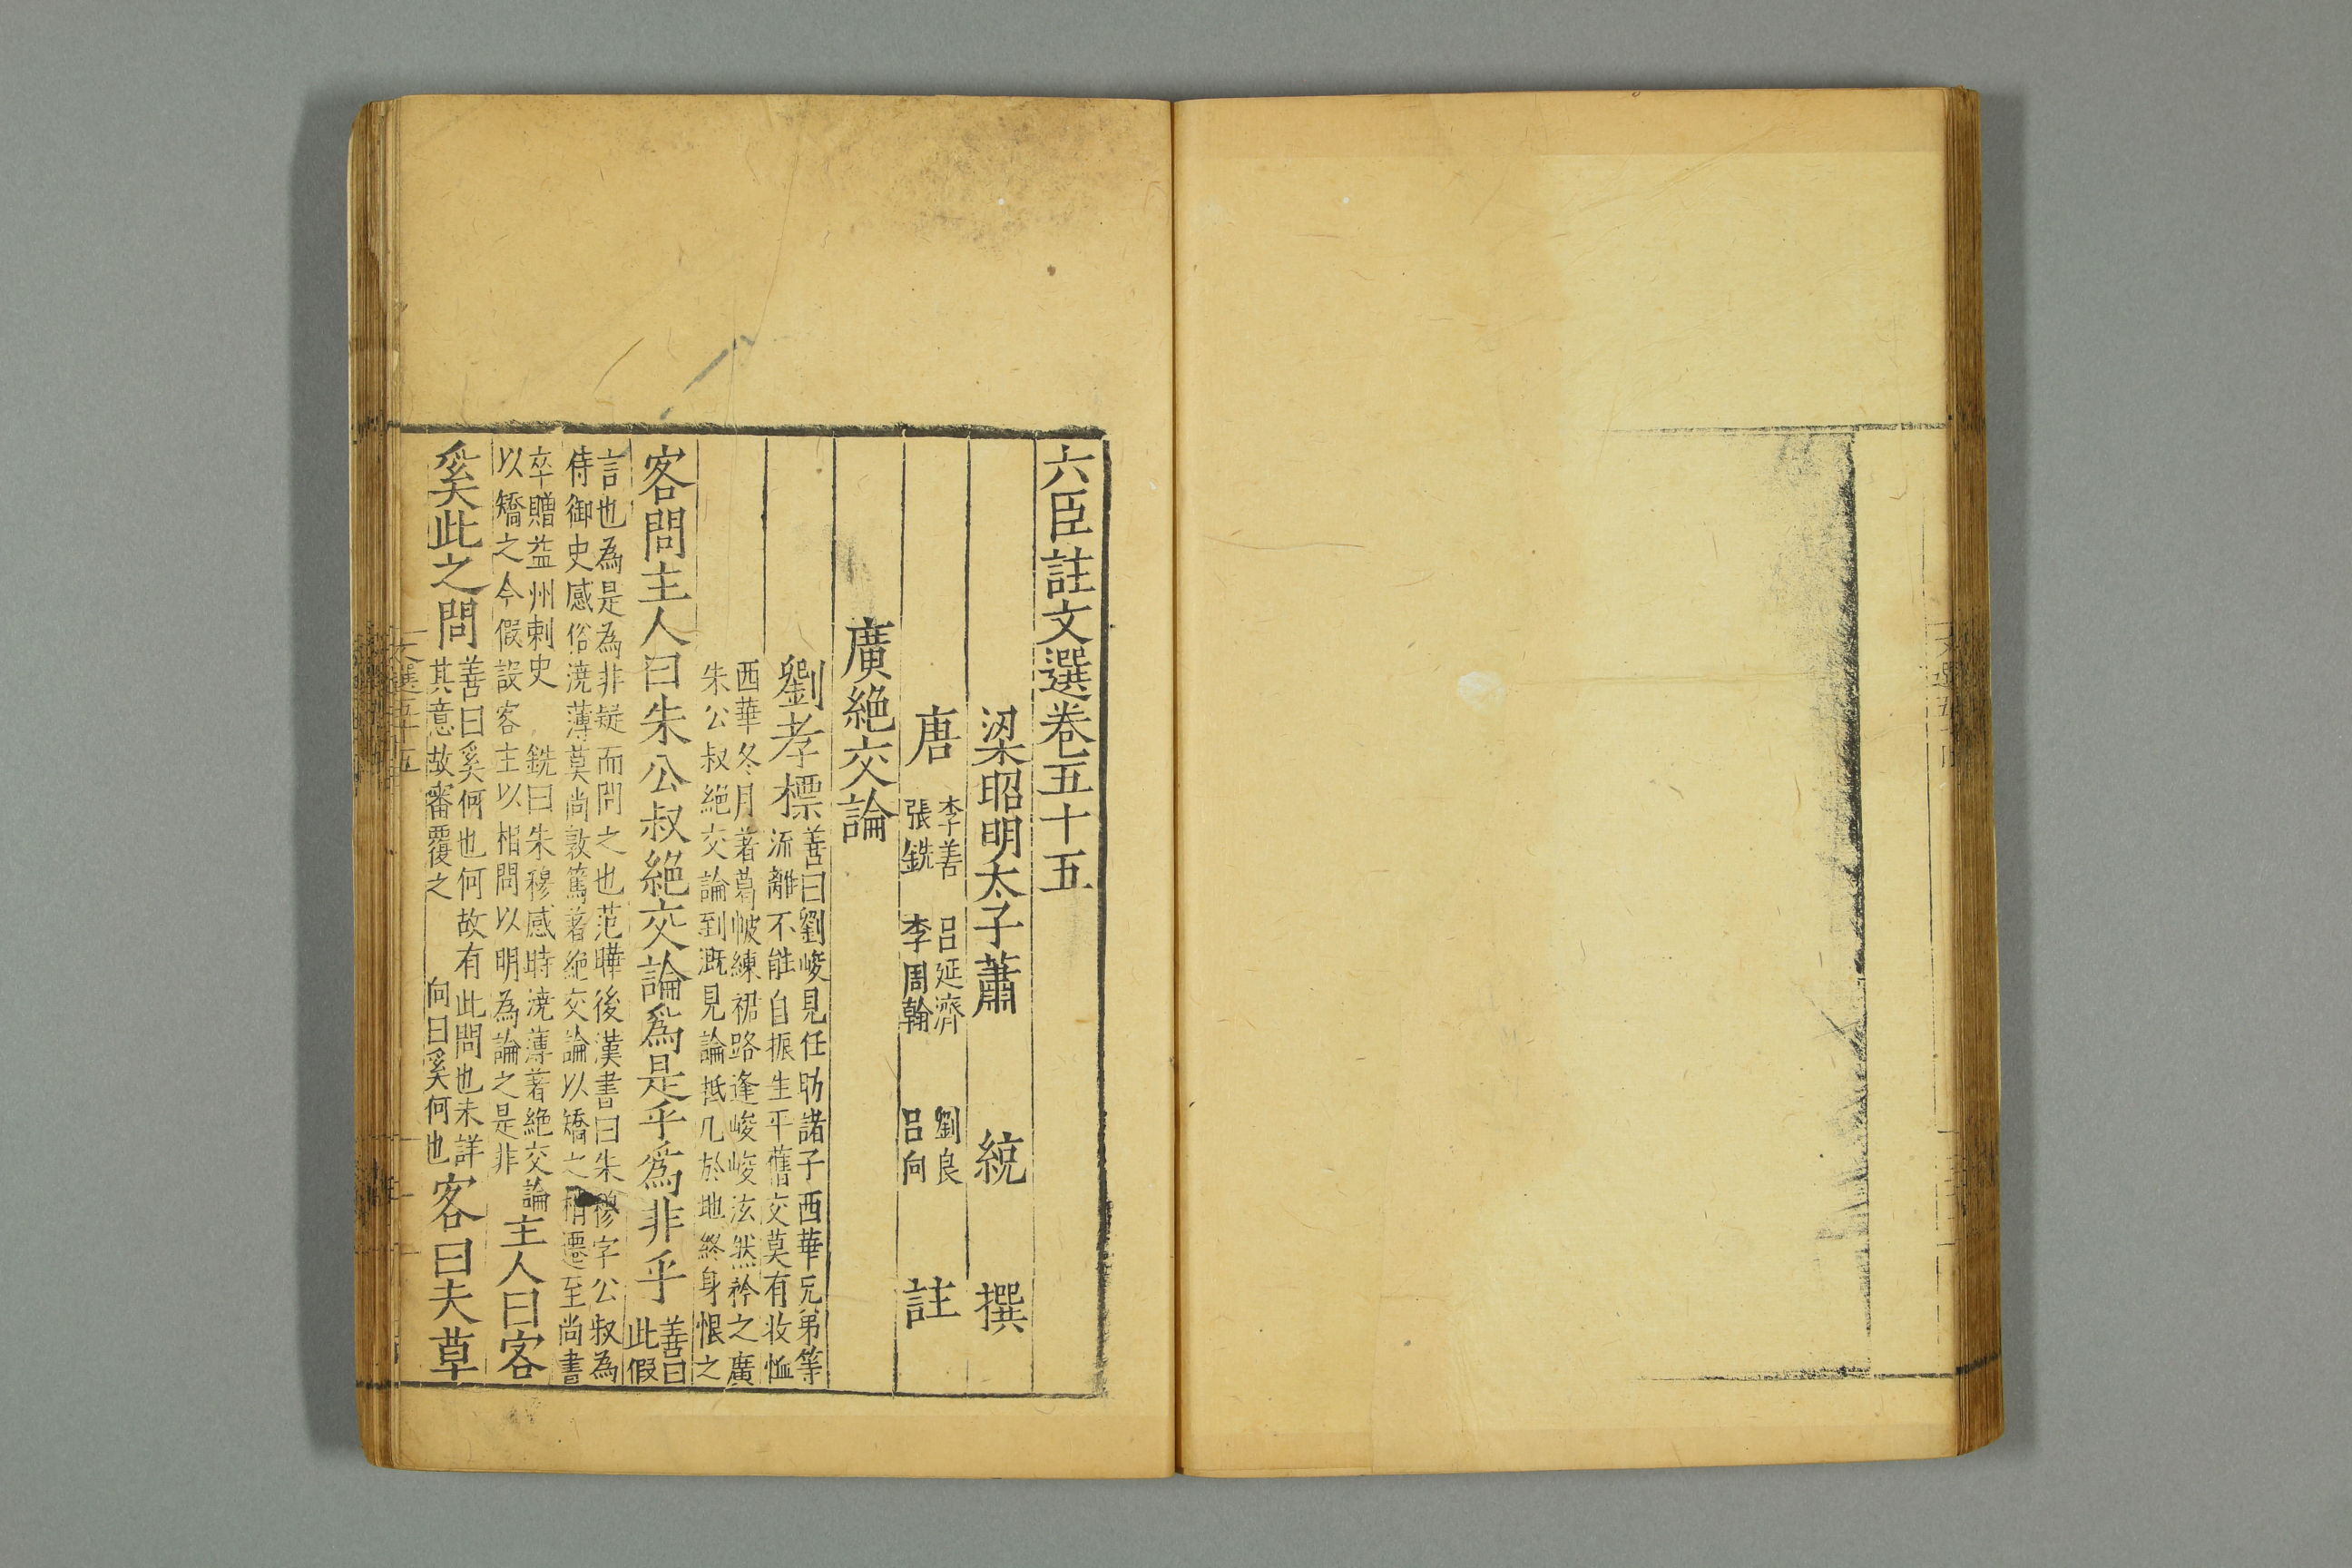 六臣註文選卷五十五
梁昭明太子蕭統撰
唐
李善
張銑
呂延濟
李周翰
劉良
呂向
註
廣絶交論
劉孝標
善曰劉峻見任昉諸子西華兄弟等
流離不能自振生平舊交莫有收恤
西華冬月著葛帔練裙路逢峻峻泫然矜之廣
朱公叔絶交論到漑見論抵几於地終身恨之
客問主人曰朱公叔絶交論爲是乎爲非乎
善曰
此假
言也為是為非疑而問之也范曄後漢書曰朱穆字公叔為
侍御史感俗澆薄莫尚敦篤著絶交論以矯之稍遷至尚書
卒贈益州刺史 銑曰朱穆感時澆薄著絶交論
以矯之今假設客主以相問以明為論之是非
主人曰客
奚此之問
善曰奚何也何故有此問也未詳
其意故審覆之 向曰奚何也
客曰夫草
文選五十五